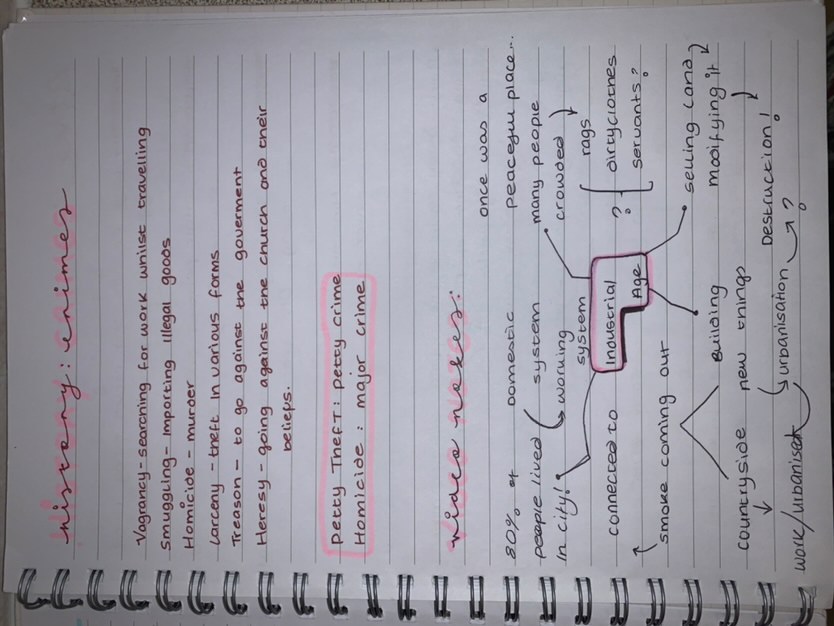 History: crimes
Vagrancy - searching for work whilst travelling
Smuggling - Importing Illegal goods
Homicide - murder
Larceny - theft in various forms
Treason - to go against the goverment
Heresy - going against the church and their
beliefs.
Petty Theft: petty crime
Homicide: major crime
Video notes:
once was a
peaceful place..
80% of
people lived
in city!
domestic
system
working
system
many people
crowded
rags
? dirty clothes
servants?
Industrial
Age
connected to
smoke coming out
selling land
modifying it
Destruction!
Building
new things
countryside
urbanisation ?
work/urbanisat